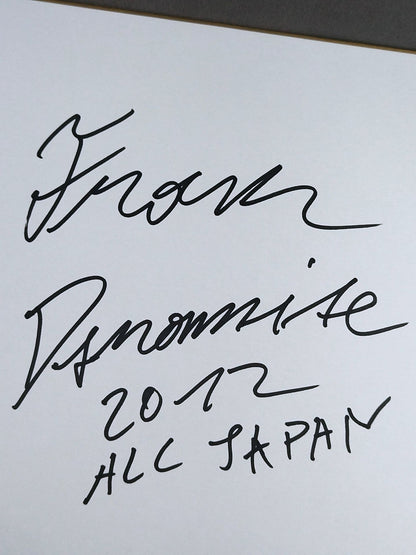 Franz
Dynamite
2012
ALL JAPAN